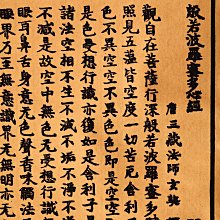 般若波羅蜜多心經
唐三藏法師玄奘
觀自在菩薩行深般若波羅蜜多
照見五蘊皆空度一切苦厄舍利
色不異空空不異色色即是空空
是色受想行識亦復如是舍利子
諸法空相不生不滅不垢不淨不
不減是故空中無色無受想行
眼耳鼻舌身意無色聲香味觸法
眼界乃至無意識界無無明亦無